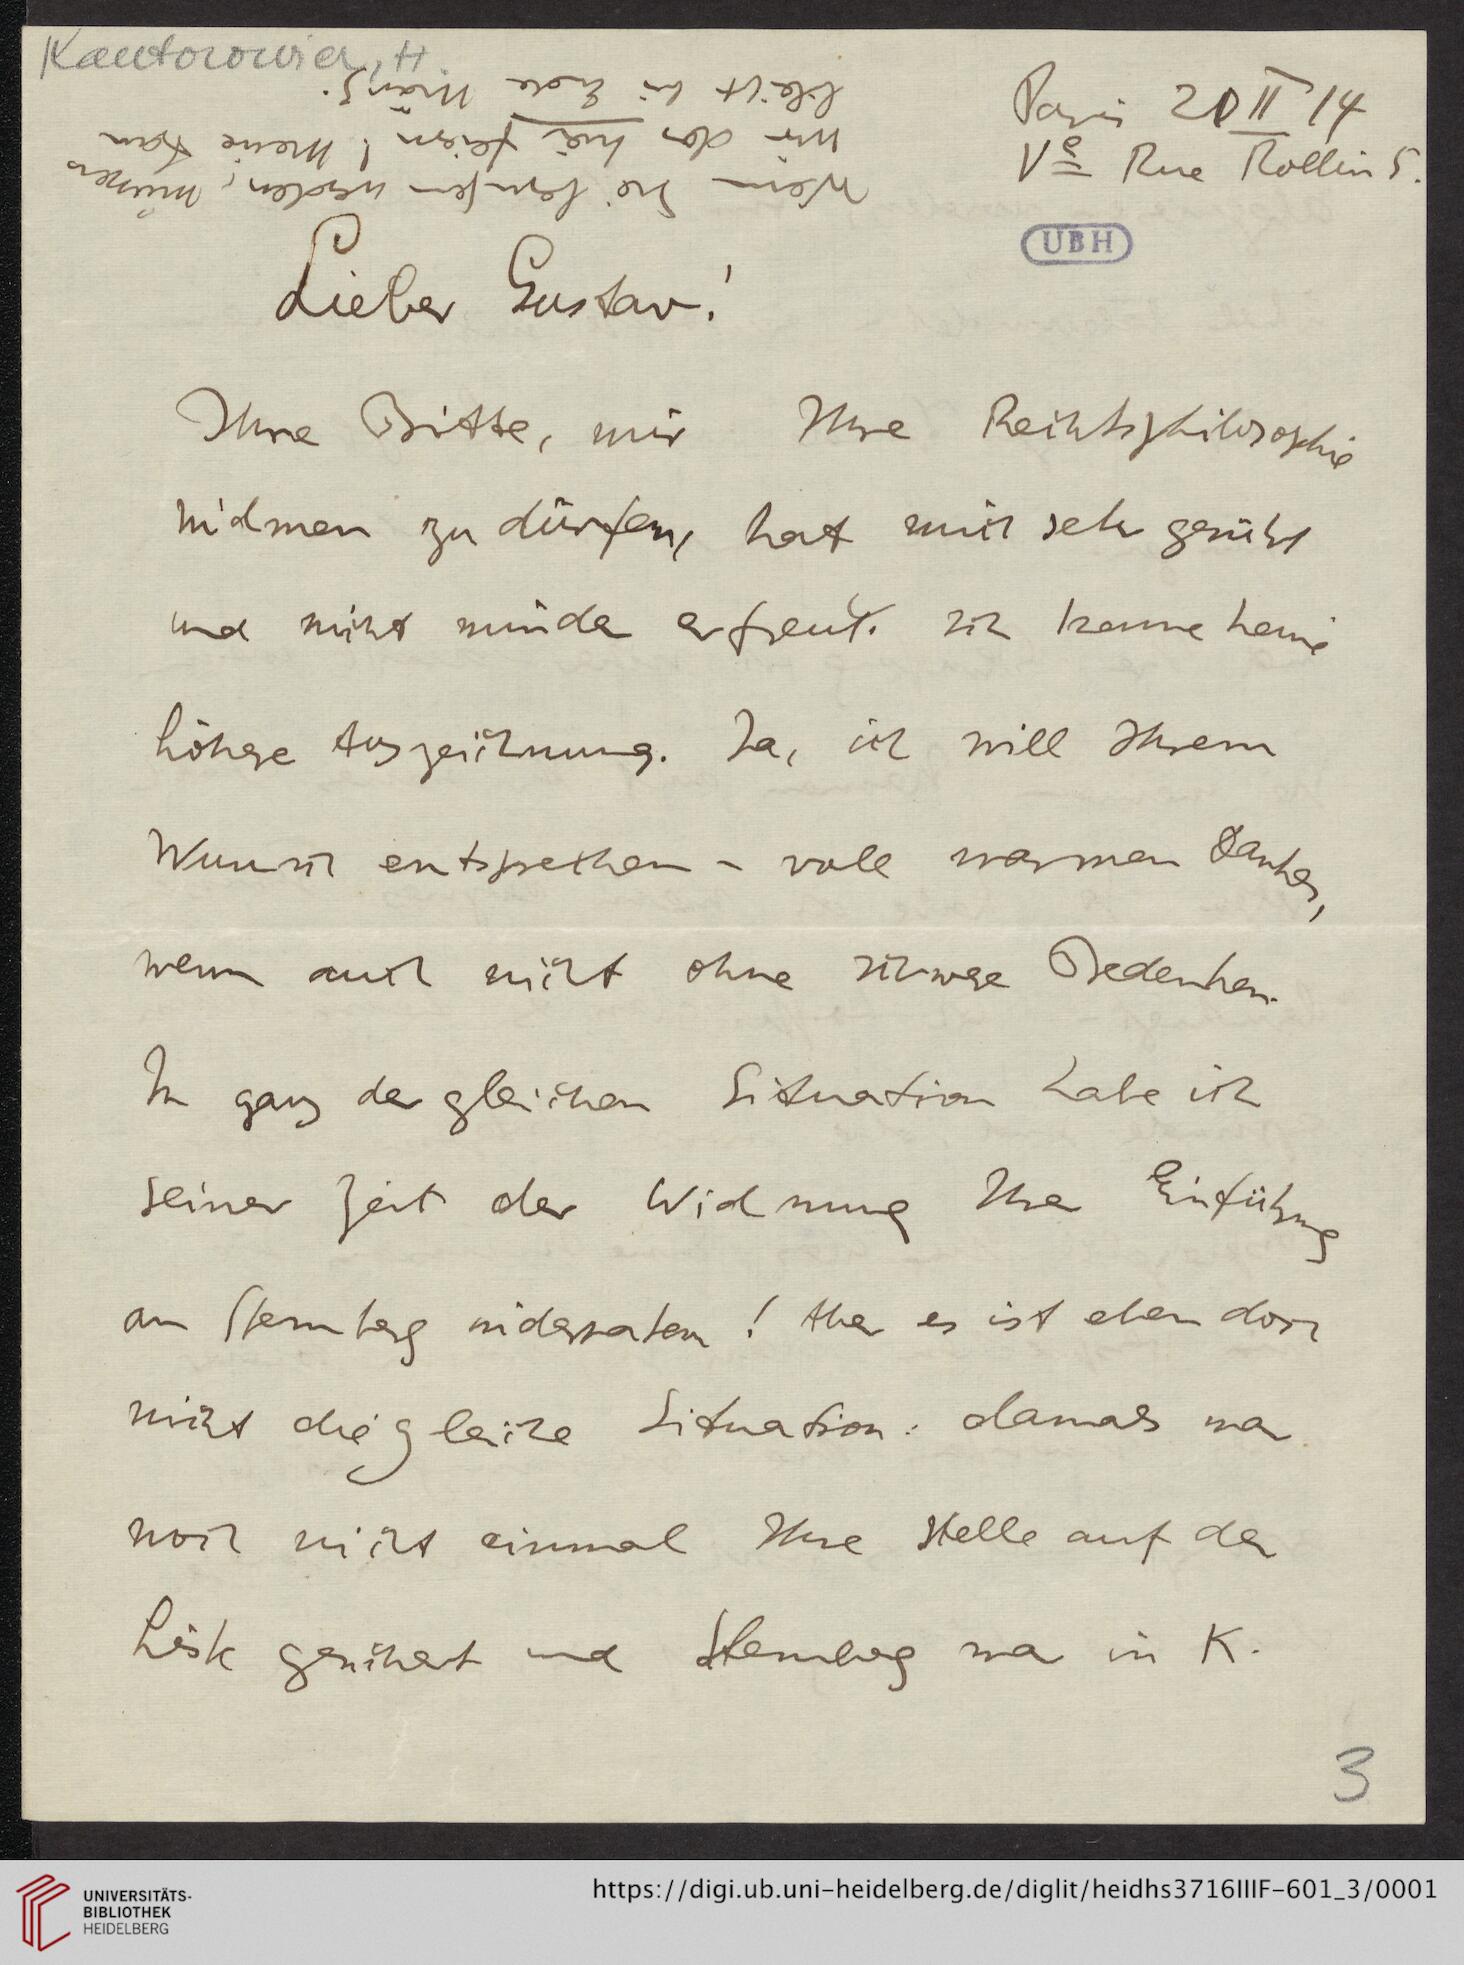 Kantorowicz, H.
Paris 20 II 14
Ve Rue Rollin 5.
Wenn Sie berufen werden, müssen
wir das hie feiern! Meine Frau
bleibt bis Ende März.
UBH
Lieber Gustav!
Ihre Bitte, mir Ihre Rechtsphilosophie
widmen zu dürfen, hat mich sehr gerührt
und nicht minder erfreut. Ich kenne keine
höhere Auszeichnung. Ja, ich will Ihrem
Wunsch entsprechen – voll warmen Dankes,
wenn auch nicht ohne schwere Bedenken.
In ganz der gleichen Situation habe ich
seiner Zeit der Widmung Ihrer Einführung
an Sternberg widerraten! Aber es ist eben doch
nicht die gleiche Situation: damals war
noch nicht einmal Ihre Stelle auf der
Liste gesichert und Sternberg war in K.
3
UNIVERSITÄTS-
BIBLIOTHEK
HEIDELBERG
https://digi.ub.uni-heidelberg.de/diglit/heidhs3716IIIF-601_3/0001